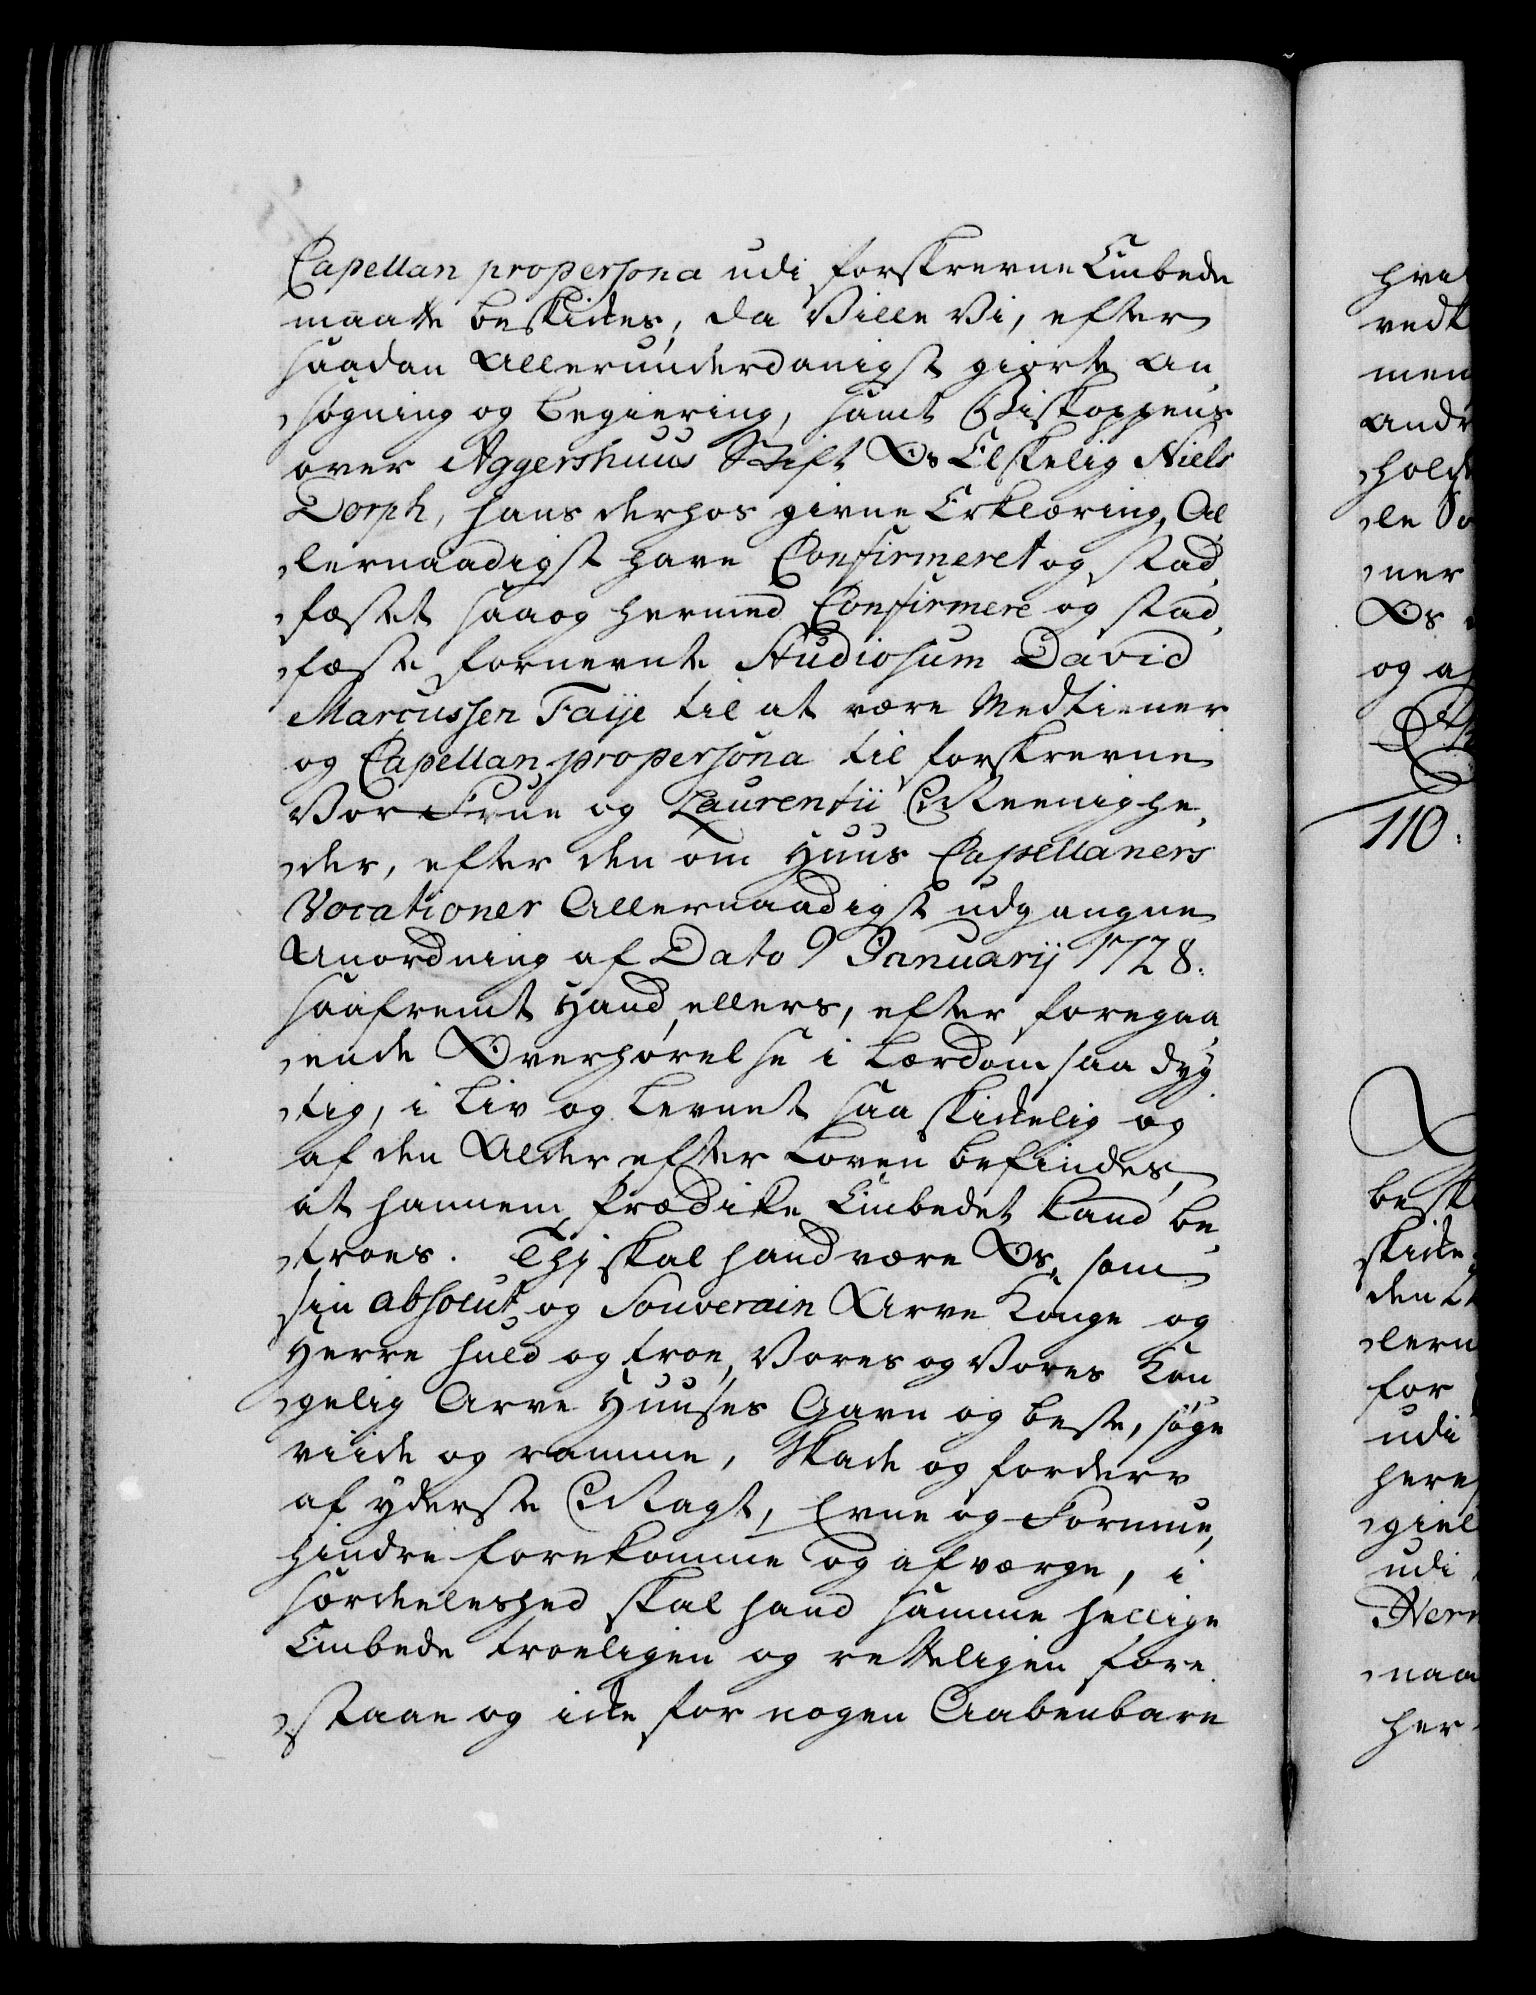 Capellan propersona udi forskrevne Embede
maatte beskickes, da Ville Vi, efter
saadan Allerunderdanigst giorte An
søgning og begiering, samt Biskoppens
over Aggershuus Stift Os Elskelig Niels
Dorph, hans derhos givne Erklæring, Al
lernaadigst have Confirmeret og stad
fæstet saa og hermed Confirmere og stad
fæste fornevnte Studiosum David
Marcussen Faije til at være Medtiener
og Capellan propersona til forskrevne
Vor Frue og Laurentii Meenighe
der, efter den om Huus Capellaners
Vocationer Allernaadigst udgangne
Anordning af Dato 9 Januarij 1728.
saafremt Hand ellers, efter foregaa
ende Overhørelse i Lærdom saa dyg
tig, i Liv og Levnet saa skickelig og
af den Alder efter Loven befindes,
at hannem Prædike Embedet kand be
troes. Thj skal hand være Os, som
sin absolut og Souverain Arve Konge og
Herre huld og troe, Vores og Vores Kon
gelig Arve Huuses Gavn og beste, søge
viide og ramme, Skade og forderv
af yderste Magt, Evne og Formue,
hindre forekomme og afværge, i
særdeleshed skal hand samme hellige
Embede troeligen og retteligen fore
staae og icke for nogen Aabenbare
hvil
vedk
men
andr
hold
le So
ner
Os
og a
110:
besk
skicke
den L
lern
for
udi
here
giel
udi
Herr
naa
her